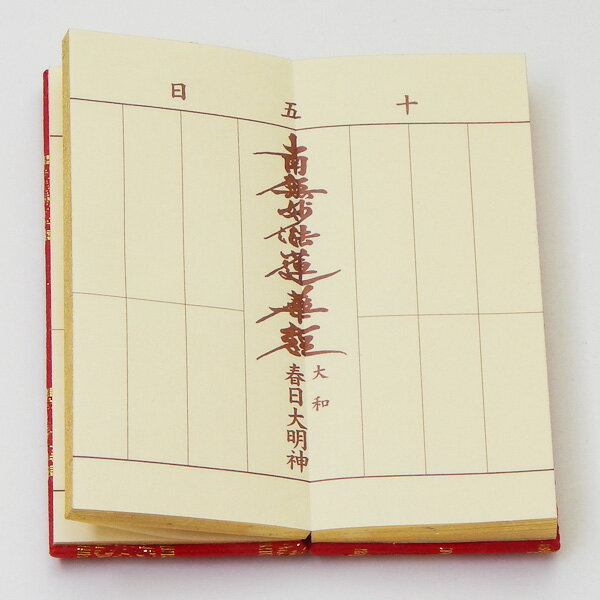 十五日
南無妙法蓮華経
大和
春日大明神